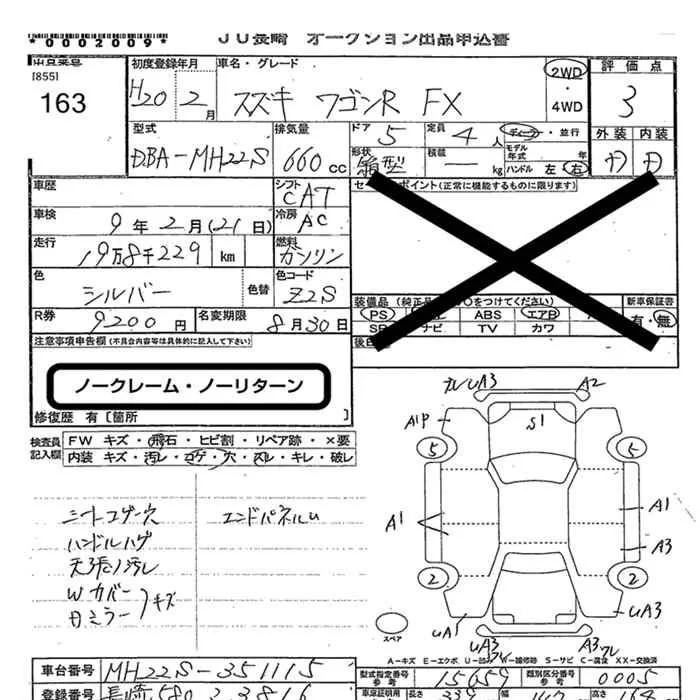 *0002009*
JU長崎 オークション出品申込書
[855]
163
初度登録年月 車名・グレード 2WD・4WD 評価点
H20 2月 スズキ ワゴンR FX 3
型式 排気量 ドア 定員 ディーラー・並行 外装 内装
DBA-MH22S 660cc 5 4人
形状 箱型 積載 ー kg モデル年式 年 ハンドル 左 右
車歴 シフト CAT
セールスポイント(正常に機能するものに限ります)
車検 9年2月(21日) 冷房 AC
走行 19万8千229 km 燃料 ガソリン
色 シルバー 色替 色コード Z2S
装備品 (純正品 ○をつけてください) 新車保証書
PS ABS エアB 有・無
SR ナビ TV カワ
R券 9200円 名変期限 8月30日
注意事項申告欄 (不具合内容等は具体的に記入して下さい)
ノークレーム・ノーリターン
修復歴 有〔箇所 〕
検査員記入欄 FW キズ・飛石・ヒビ割・リペア跡・×要
内装 キズ・汚レ・コゲ・穴・スレ・キレ・破レ
シートコゲ穴 エンドパネルU
ハンドルハゲ
天張り汚レ
Wカバー
Dミラー キズ
A3 A2
A1P S1
5 5
A1 A1
A3
2 2
UA1 UA3
UA3 A3
スペア
A-キズ E-エクボ U-凹 W-補修跡 S-サビ C-腐食 XX-交換済
車台番号 MH22S-351115 型式指定番号 15659 類別区分番号 0005
登録番号 長崎580